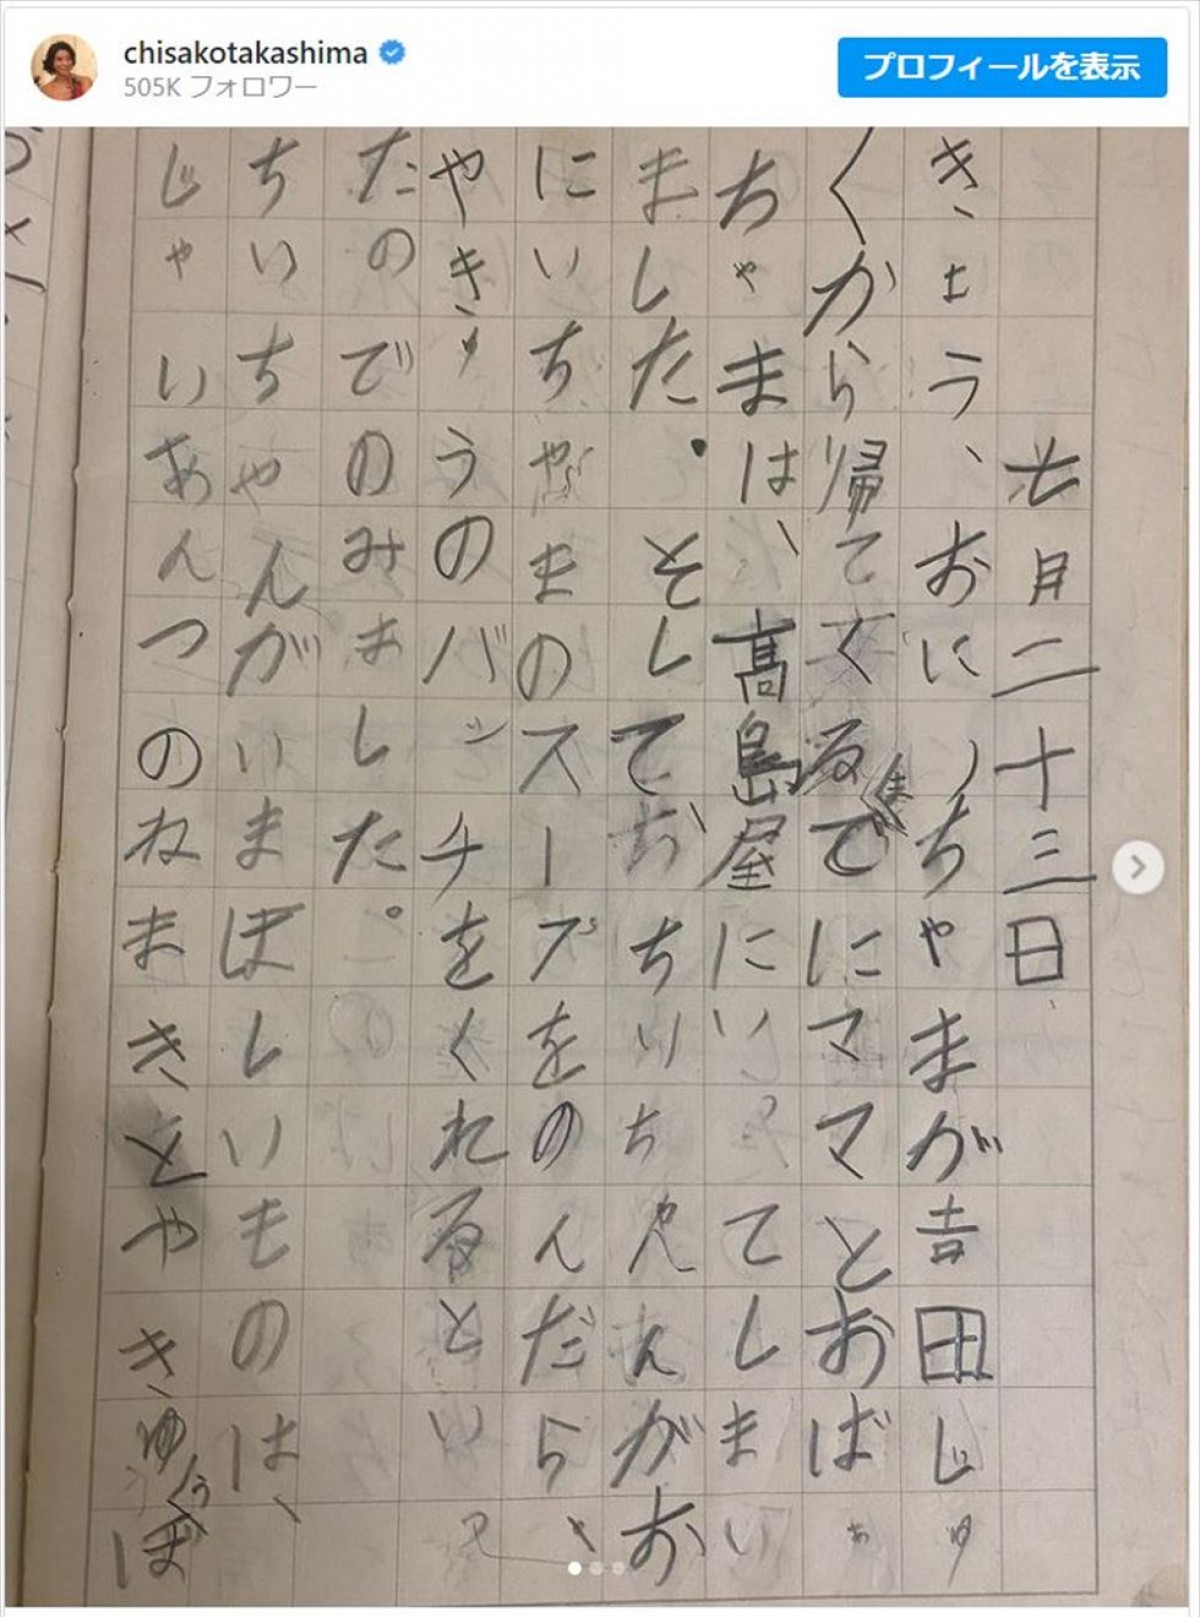 chisakotakashima
505K フォロワー
プロフィールを表示
七月二十三日
きょう、おにいちゃまが吉田じゅ
くから帰てくるまでにママとおばあ
ちゃまは、高島屋にいってしまい
ました。そしておちいちゃんがお
にいちゃまのスープをのんだら、
やきゅうのバッチをくれるといっ
たのでのみました。
ちいちゃんがいまほしいものは、
じゃいあんつのねまきとやきゅうぼ